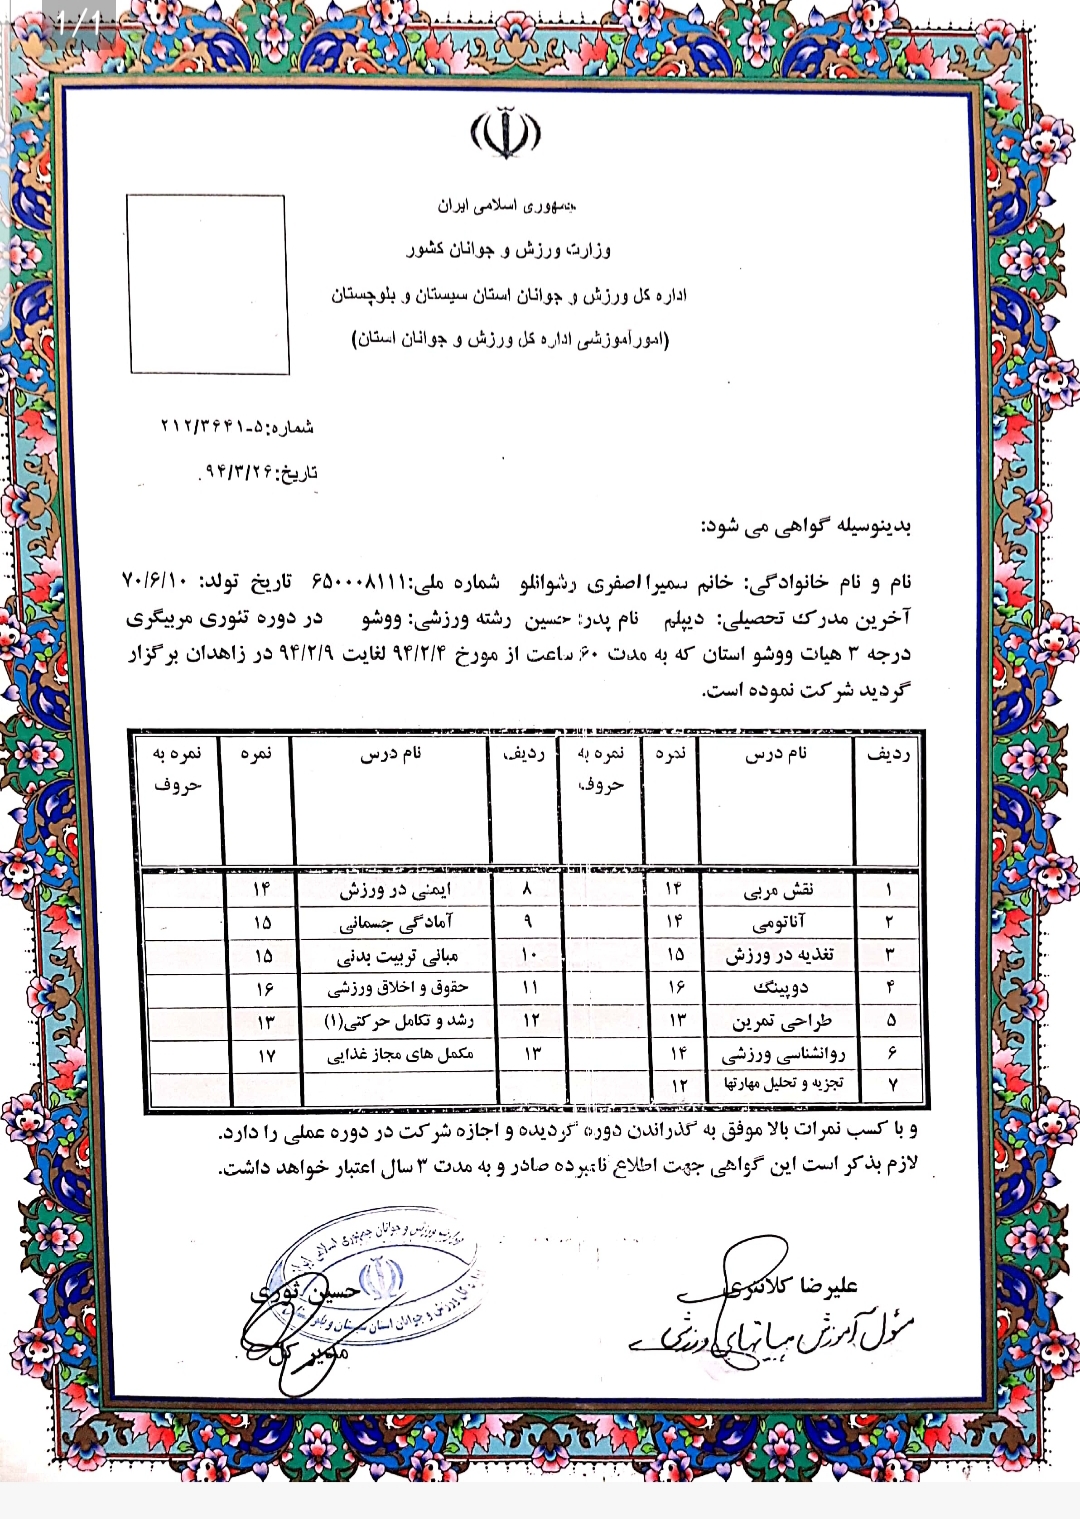 1/1
جمهوری اسلامی ایران
وزارت ورزش و جوانان کشور
اداره کل ورزش و جوانان استان سیستان و بلوچستان
(امورآموزشی اداره کل ورزش و جوانان استان)
شماره:۵-۲۱۲/۳۶۴۱
تاریخ:۹۴/۳/۲۶
بدینوسیله گواهی می شود:
نام و نام خانوادگی: خانم سمیرا اصفری رشوانلو شماره ملی:۶۵۰۰۰۸۱۱۱ تاریخ تولد: ۷۰/۶/۱۰
آخرین مدرک تحصیلی: دیپلم نام پدر: حسین رشته ورزشی: ووشو در دوره تئوری مربیگری
درجه ۳ هیات ووشو استان که به مدت ۶۰ ساعت از مورخ ۹۴/۲/۴ لغایت ۹۴/۲/۹ در زاهدان برگزار
گردید شرکت نموده است.
ردیف نام درس نمره نمره به حروف ردیف نام درس نمره نمره به حروف
۱ نقش مربی ۱۴ ۸ ایمنی در ورزش ۱۴
۲ آناتومی ۱۴ ۹ آمادگی جسمانی ۱۵
۳ تغذیه در ورزش ۱۵ ۱۰ مبانی تربیت بدنی ۱۵
۴ دوپینگ ۱۶ ۱۱ حقوق و اخلاق ورزشی ۱۶
۵ طراحی تمرین ۱۳ ۱۲ رشد و تکامل حرکتی(۱) ۱۳
۶ روانشناسی ورزشی ۱۴ ۱۳ مکمل های مجاز غذایی ۱۷
۷ تجزیه و تحلیل مهارتها ۱۲
و با کسب نمرات بالا موفق به گذراندن دوره گردیده و اجازه شرکت در دوره عملی را دارد.
لازم بذکر است این گواهی جهت اطلاع نامبرده صادر و به مدت ۳ سال اعتبار خواهد داشت.
علیرضا کلانتری
مسئول آموزش هیاتهای ورزشی
حسین نوری
مدیر کل